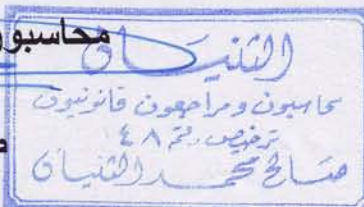 محاسبو
الثنيان
محاسبون ومراجعون قانونيون
ترخيص رقم ٤٨
صالح محمد الثنيان